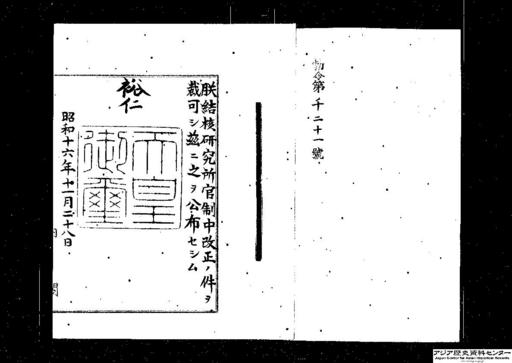 勅令第千二十一號
朕結核研究所官制中改正ノ件ヲ
裁可シ茲ニ之ヲ公布セシム
裕仁
天皇
御璽
昭和十六年十一月二十八日
アジア歴史資料センター
Japan Center for Asian Historical Records